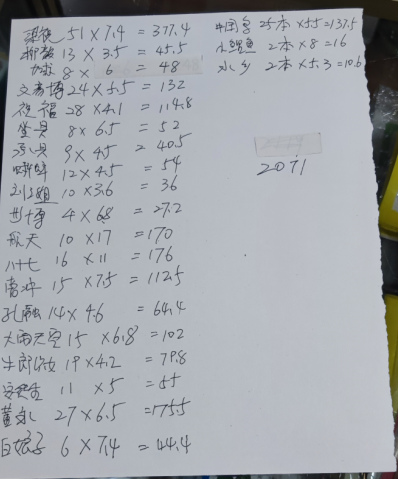 51 × 7.4 = 377.4
13 × 3.5 = 45.5
8 × 6 = 48
交易博 24 × 5.5 = 132
祝福 28 × 4.1 = 114.8
坐具 8 × 6.5 = 52
9 × 4.5 = 40.5
12 × 4.5 = 54
刘三姐 10 × 3.6 = 36
世博 4 × 6.8 = 27.2
航天 10 × 17 = 170
八十七 16 × 11 = 176
15 × 7.5 = 112.5
孔融 14 × 4.6 = 64.4
大雨天空 15 × 6.8 = 102
牛郎织女 19 × 4.2 = 79.8
11 × 5 = 55
董永 27 × 6.5 = 175.5
白娘子 6 × 7.4 = 44.4
中国鸟 25本 × 5.5 = 137.5
2本 × 8 = 16
水乡 2本 × 5.3 = 10.6
2071